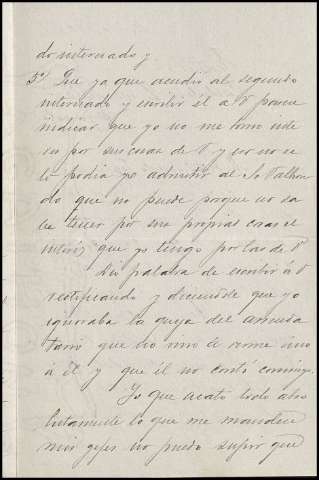 do internado y
3º) Que ya que acudir al segundo
internado y escribir él a V parece
indicar que yo no me tomo inte
res por sus cosas de V. y eso no se
lo podia yo admitir al Sr Vallhon
do que no puede porque no sa
be tener por sus propias cosas el
interés que yo tengo por las de V.
Dió palabra de escribir á V
rectificando y diciendole que yo
ignoraba la queja del
que no vino á verme sino
á él y que él no contó conmigo.
Yo que acato todo abso
lutamente lo que me manden
mis gefes no puedo sufrir que